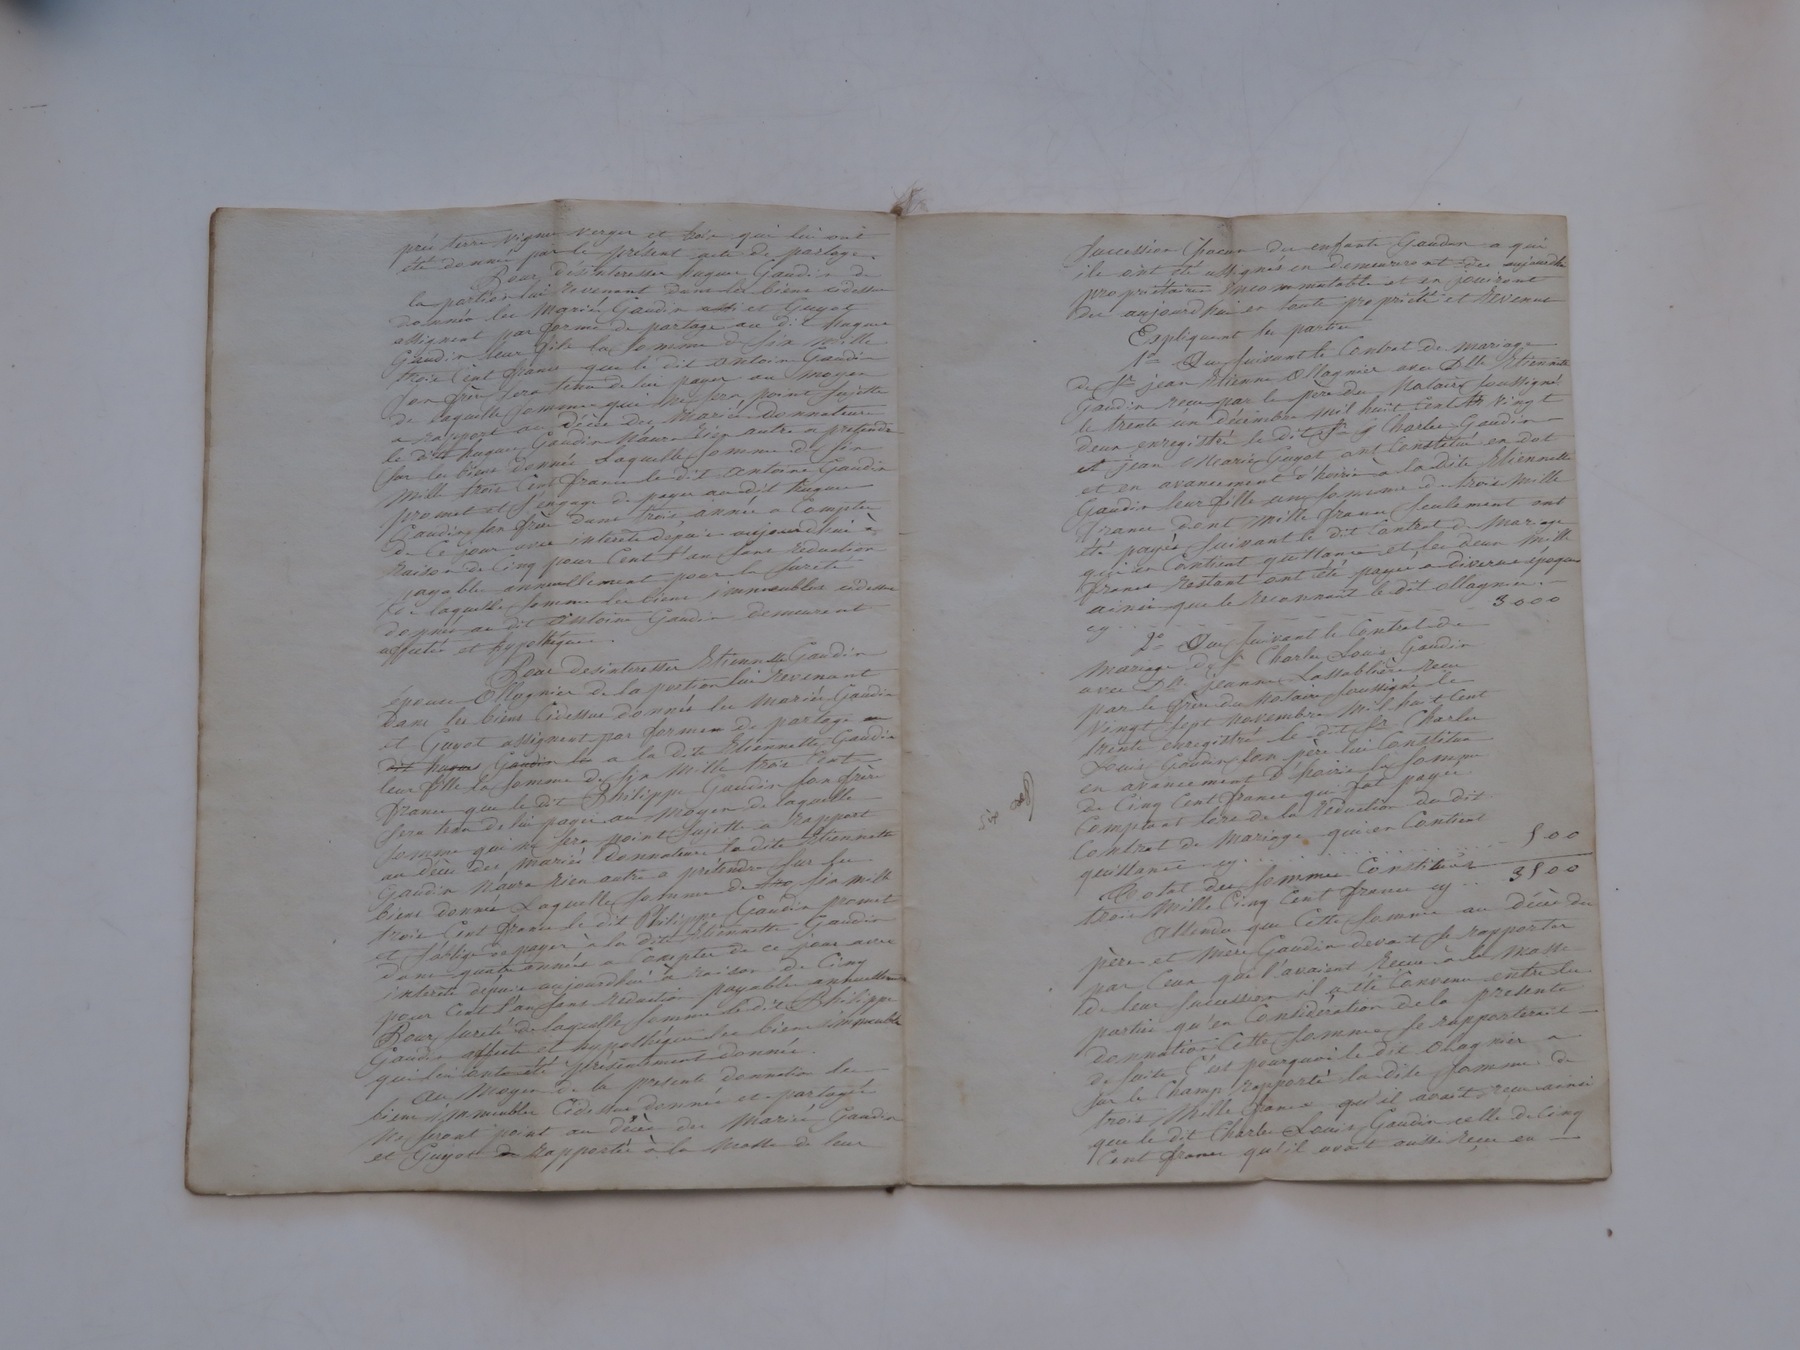 prés terre vigne verger et bois qui lui ont
été donnés par le présent acte de partage.
Pour désinteresser hugue Gaudin de
la portion lui revenant dans les biens cidessus
donnés les Mariés Gaudin et Guyot
assignent par forme de partage au dit hugue
Gaudin leur fils la Somme de Six Mille
trois Cent francs que le dit antoine Gaudin
Son frère Sera tenu de lui payer au moyen
de laquelle Somme qui ne Sera point Sujette
a rapport au décès des Mariés donnateurs
le dit hugue Gaudin N'aura Rien autre a pretendre
Sur les biens donnés Laquelle Somme de Six
Mille trois Cent francs le dit antoine Gaudin
promet et S'engage de payer au dit hugue
Gaudin Son frère dans trois années a Compter
de Ce jour avec intérêts depuis aujourd'hui à
Raison de Cinq pour Cent l'an Sans Réduction
payables annuellement pour la Sureté
de laquelle Somme les biens immeubles cidessus
donnés au dit antoine Gaudin demeurent
affectés et hypothéqués.
Pour desinteresser Etiennette Gaudin
épouse Ollagnier de la portion lui Revenant
dans les biens Cidessus donnés les Mariés Gaudin
et Guyot assignent par forme de partage au
dit hugue Gaudin a la dite Etiennette Gaudin
leur fille la Somme de Six Mille trois Cent
francs que le dit Philippe Gaudin Son frère
Sera tenu de lui payer au Moyen de laquelle
Somme qui ne Sera point Sujette a Rapport
au décès des mariés donnateurs la dite Etiennette
Gaudin N'aura Rien autre a prétendre Sur les
biens donnés Laquelle Somme de Six mille
trois Cent francs le dit Philippe Gaudin promet
et S'oblige de payer à la dite Etiennette Gaudin
dans quatre années a Compter de ce jour avec
intérêts depuis aujourd'hui à Raison de Cinq
pour Cent l'an Sans Réduction payables annuellement
Pour Sureté de laquelle Somme le dit Philippe
Gaudin affecte et hypothéque les biens immeubles
qui lui ont été présentement donnés.
Au Moyen de la presente donnation les
biens immeubles Cidessus donnés et partagés
Ne Seront point au décès des Mariés Gaudin
et Guyot Rapportés à la Masse de leur
Succession Chacun des enfants Gaudin a qui
ils ont été assignés en demeureront dès aujourdhui
propriétaires incommutables et en jouiront
dès aujourdhui en toute propriété et Revenus
Expliquent les parties
1o Que Suivant le Contrat de Mariage
de Sr jean Etienne Ollagnier avec Dlle Etiennette
Gaudin Reçu par le père du Notaire Soussigné
le trente un décembre Mil huit Cent Vingt
deux enregistré le dit Sr Charles Gaudin
et jean Marie Guyot ont Constitué en dot
et en avancement d'hoirie à la dite Etiennette
Gaudin leur fille une Somme de trois Mille
francs dont Mille francs Seulement ont
été payés Suivant le dit Contrat de Mariage
qui en Contient quittance et les deux Mille
francs Restant ont été payés a diverses époques
ainsi que le Reconnait le dit Ollagnier.
cy . . . . . . 3000
2o Que Suivant le Contrat de
Mariage de Sr Charles Louis Gaudin
avec Dlle jeanne Lassablière Reçu
par le frère du Notaire Soussigné le
Vingt Sept Novembre Mil huit Cent
trente enregistré le dit Sr Charles
Louis Gaudin Son père lui Constitua
en avancement d'hoirie la Somme
de Cinq Cent francs qui fut payée
Comptant lors de la Rédaction du dit
Contrat de Mariage qui en Contient
quittance cy . . . . . . 500
Total des Sommes Constituées
trois Mille Cinq Cent francs cy . . 3500
Attendu que Cette Somme au décès des
père et Mère Gaudin devait Se rapporter
par Ceux qui l'avaient Reçue à la Masse
de leur Succession il a été Convenu entre les
parties qu'en Considération de la presente
donnation Cette Somme Se rapporterait
de Suite C'est pourquoi le dit Olagnier a
Sur le Champ Rapporté la dite Somme de
trois Mille francs qu'il avait reçu ainsi
que le dit Charles Louis Gaudin celle de Cinq
Cent francs qu'il avait aussi Reçue en